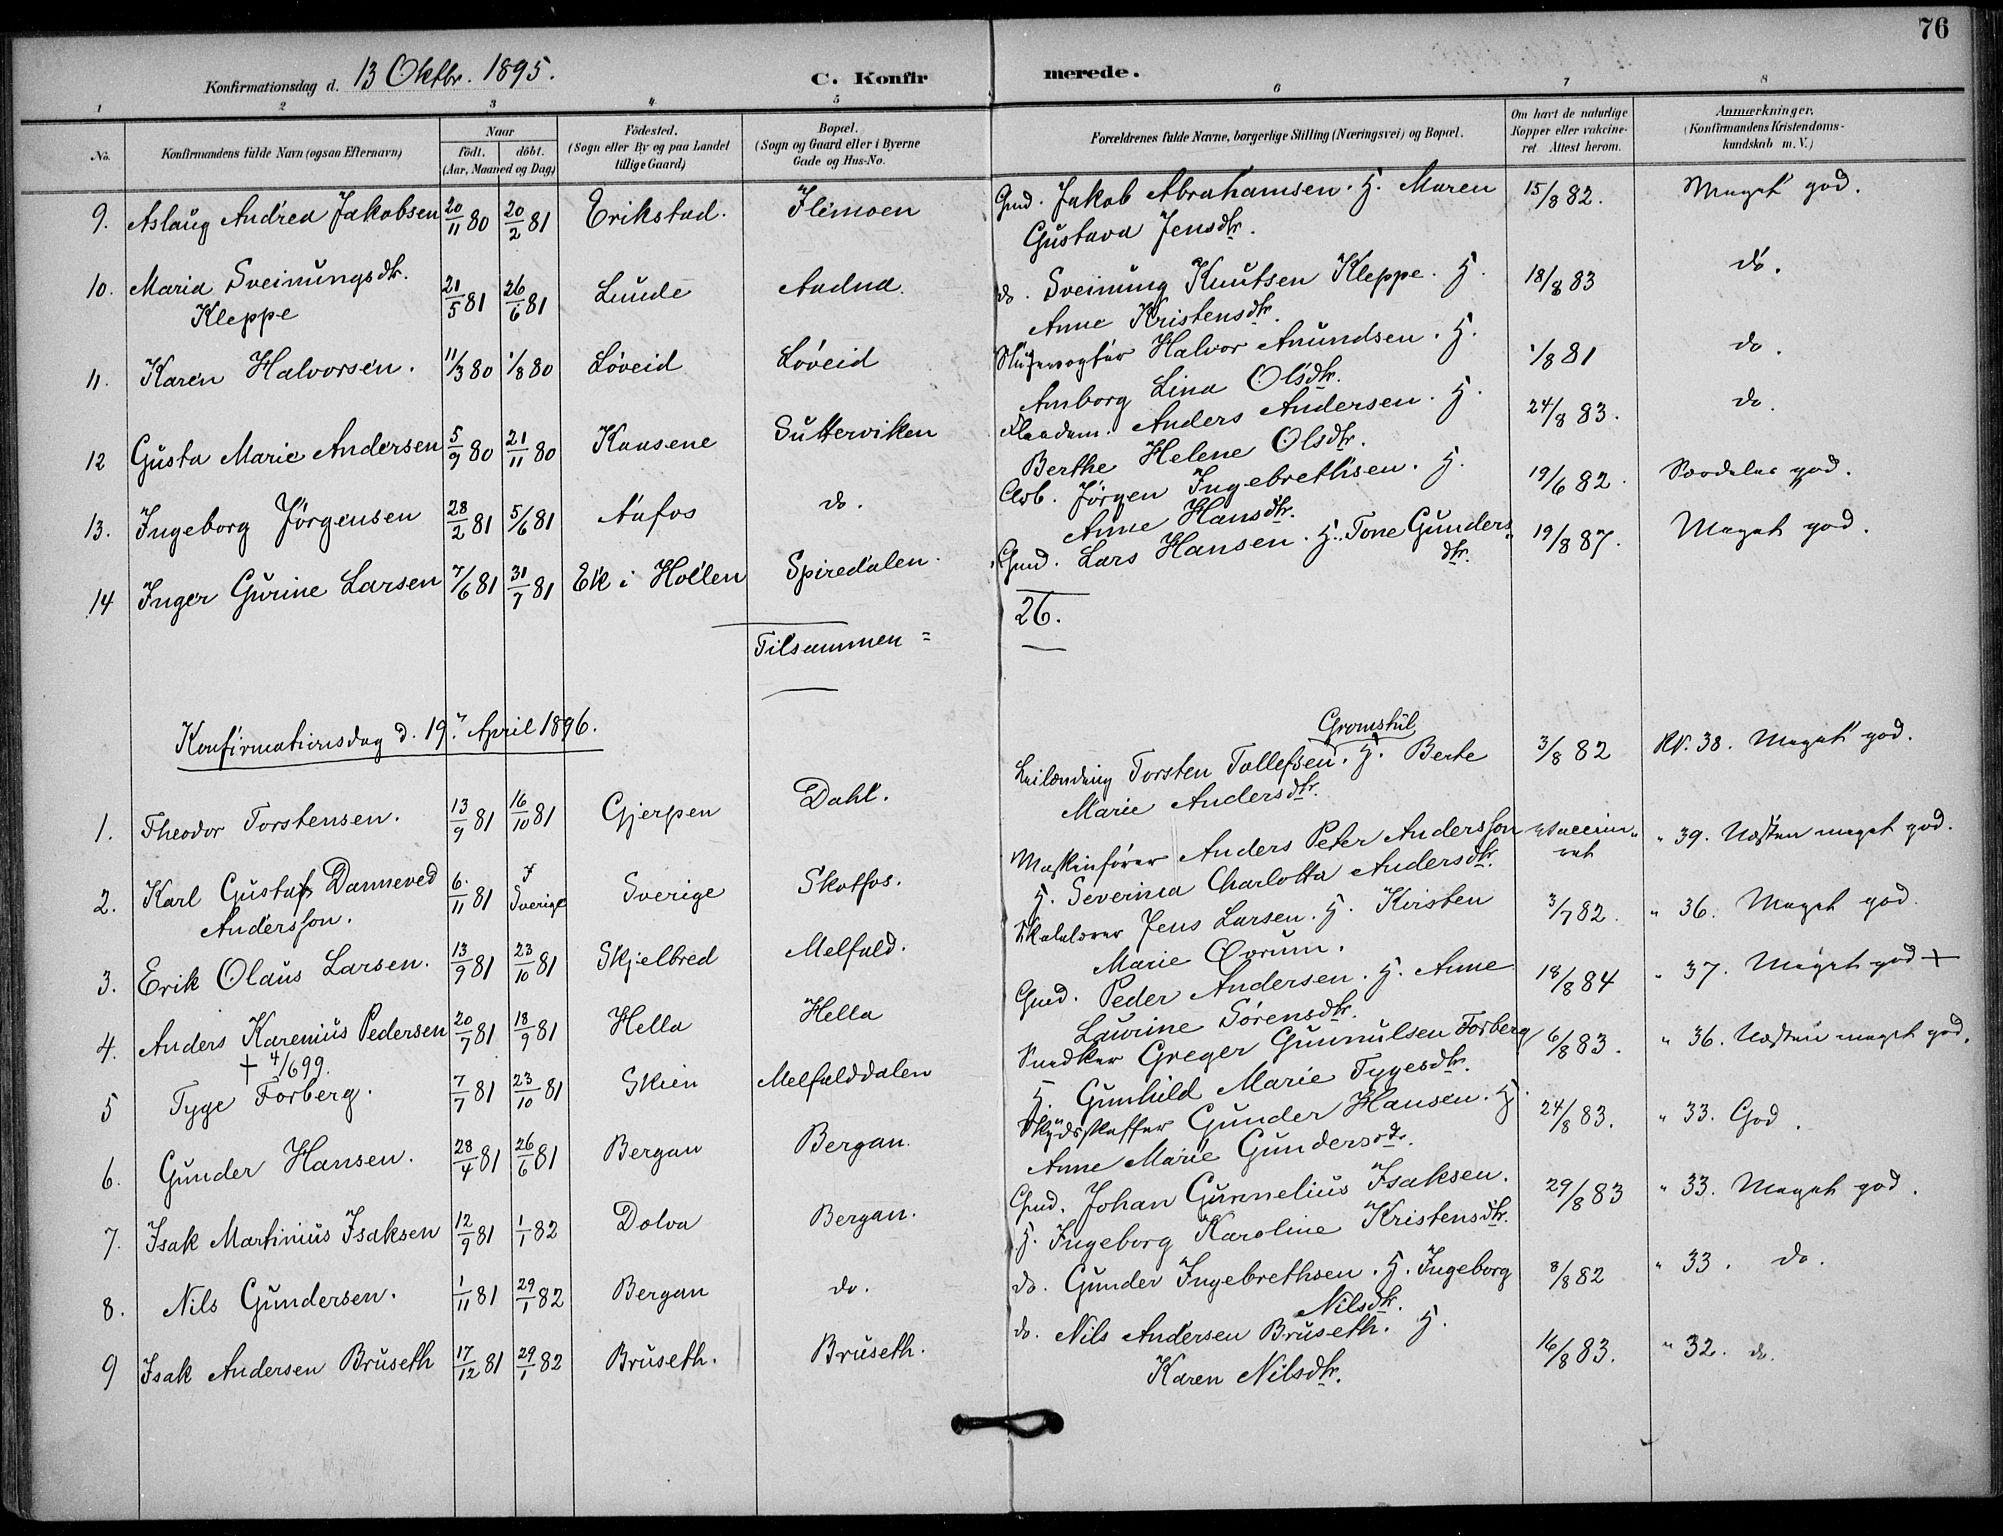 76
Konfirmationsdag d. 13 Oktbr. 1895.
C. Konfirmerede.
1 2 3 4 5 6 7 8
No.
Konfirmandens fulde Navn (ogsaa Efternavn)
Naar
födt. döbt.
(Aar, Maaned og Dag)
Födested.
(Sogn eller By og paa Landet
tillige Gaard)
Bopæl.
(Sogn og Gaard eller i Byerne
Gade og Hus-No.
Forældrenes fulde Navne, borgerlige Stilling (Næringsvei) og Bopæl.
Om havt de naturlige
Kopper eller vakcine-
ret Attest herom.
Anmærkninger.
(Konfirmandens Kristendoms-
kundskab m. V.)
9. Aslaug Andrea Jakobsen 20/11 80 20/2 81 Erikstad. Flimoen Gmd. Jakob Abrahamsen. H. Maren 15/8 82. Meget god.
Gustava Jensdtr.
10. Maria Sveinungsdtr. 21/5 81 26/6 81 Lunde Aadna do. Sveinung Knutsen Kleppe. H. 18/8 83 do.
Kleppe Anne Kristensdtr.
11. Karen Halvorsen. 11/3 80 1/8 80 Løveid Løveid Halvor Amundsen. H. 1/8 81 do.
Amborg Lina Olsdtr.
12 Gusta Marie Andersen 5/9 80 21/11 80 Kaasene Sutterviken Anders Andersen. H. 24/8 83. do.
Berthe Helene Olsdtr.
13. Ingeborg Jörgensen 28/2 81 5/6 81 Aafos do. Arb. Jörgen Ingebrethsen. H. 19/6 82. Særdeles god.
Anne Hansdtr.
14 Inger Gurine Larsen 7/6 81 31/7 81 Ek i Hollen Spiredalen. Gmd. Lars Hansen. H. Tone Gunders- 19/8 87. Meget god.
dtr.
Tilsammen = 26.
Konfirmationsdag d. 19. April 1896.
Gromstul
1. Theodor Torstensen. 13/9 81 16/10 81 Gjerpen Dahl. Leilænding Torsten Tollefsen. H. Berte 3/8 82 Kr. 38. Meget god.
Marie Andersdtr.
2. Karl Gustaf Danneved 6/11 81 i Sverige Sverige Skotfos. Maskinfører Anders Peter Andersson Vaccine- " 39. Næsten meget god.
ret
Andersson. H. Severina Charlotta Andersdtr.
3. Erik Olaus Larsen. 13/9 81 23/10 81 Skjelbred Melfald. Skolelærer Jens Larsen. H. Kirsten 3/7 82. " 36. Meget god.
Marie Øvrum.
4. Anders Karenius Pedersen 20/7 81 18/9 81 Hella Hella Gmd. Peder Andersen. H. Anne 18/8 84 " 37. Meget god +
+ 4/6 99. Laurine Sörensdtr.
5 Tyge Forberg. 7/7 81 23/10 81 Skien Melfalddalen Snedker Greger Gunnulsen Forberg 6/8 83. " 36. Næsten meget god.
H. Gunhild Marie Tygesdtr.
6. Gunder Hansen. 28/4 81 26/6 81 Bergan Bergan. Skydsskaffer Gunder Hansen. H. 24/8 83. " 33. God.
Anne Marie Gundersdtr.
7. Isak Martinius Isaksen 12/9 81 1/1 82 Dolva Bergan. Gmd. Johan Gunnelius Isaksen. 29/8 83 " 33. Meget god.
H. Ingeborg Karoline Kristensdtr.
8. Nils Gundersen. 1/11 81 29/1 82 Bergan do. do. Gunder Ingebrethsen. H. Ingeborg 8/8 82 " 33. do.
Nilsdtr.
9 Isak Andersen Bruseth 17/12 81 29/1 82 Bruseth. Bruseth. do. Nils Andersen Bruseth. H. 16/8 83. " 32. do.
Karen Nilsdtr.